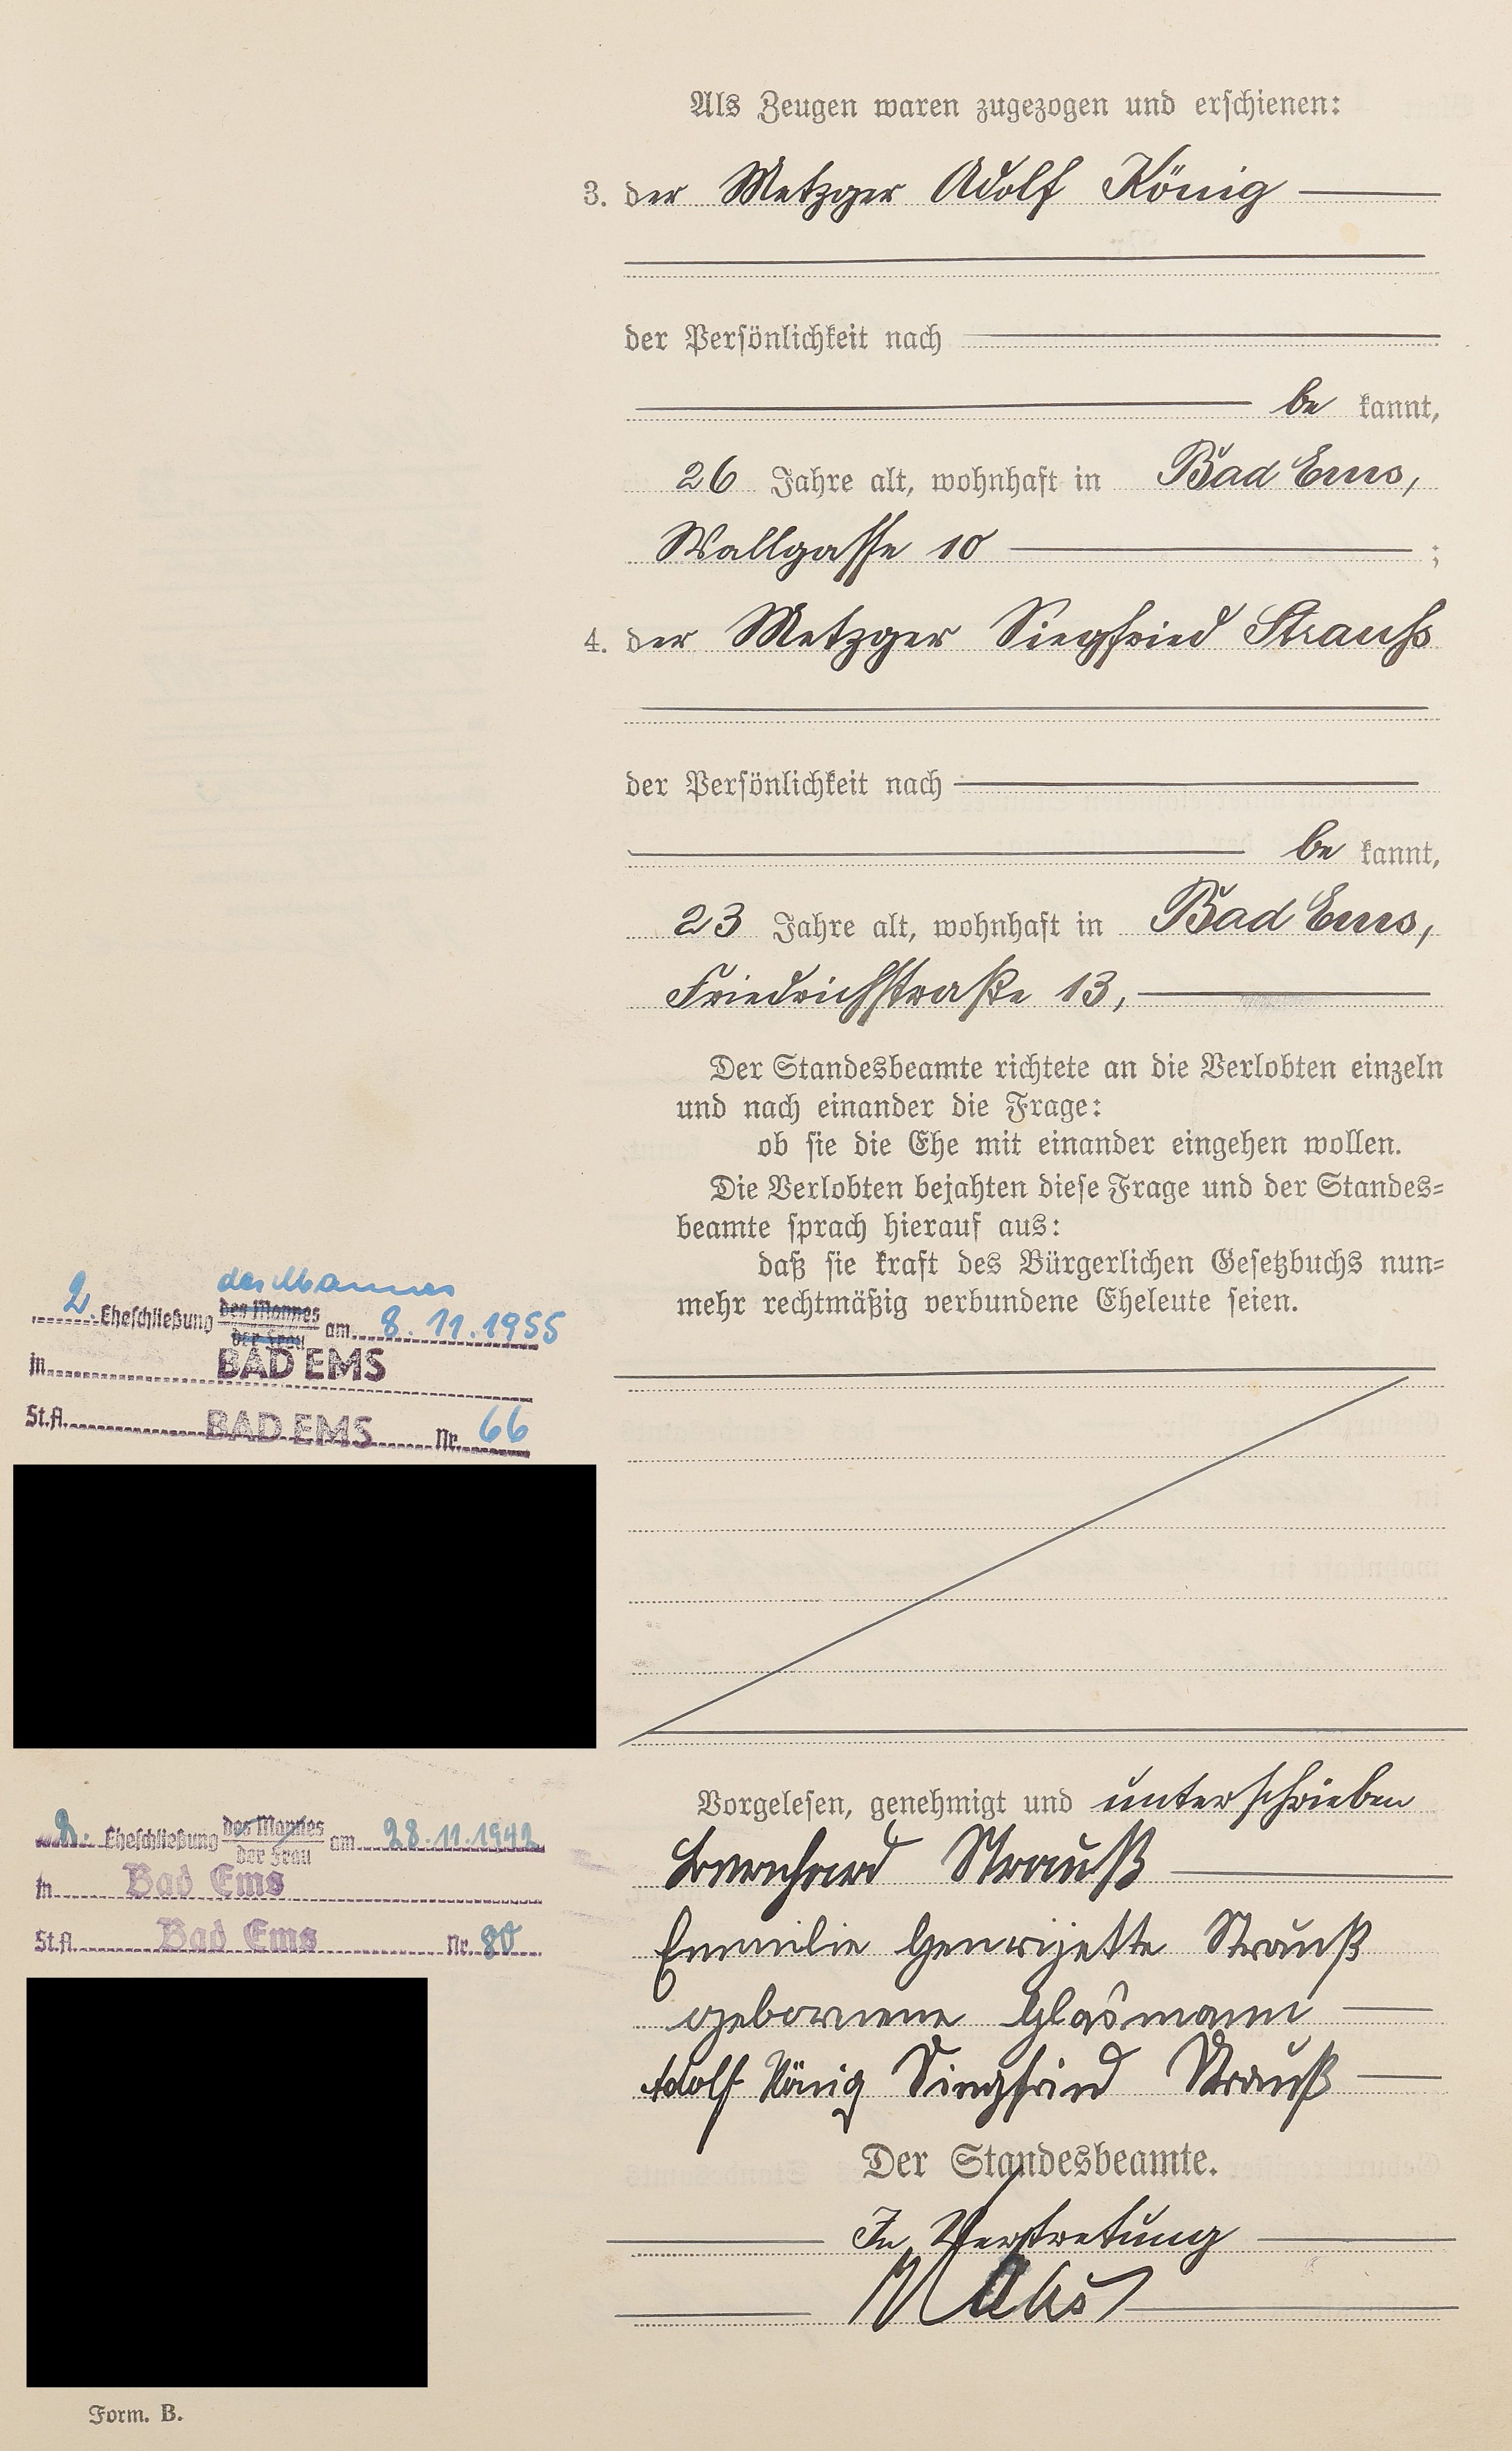 Als Zeugen waren zugezogen und erschienen:
3. der Metzger Adolf König
der Persönlichkeit nach
be kannt,
26 Jahre alt, wohnhaft in Bad Ems,
Wallgasse 10 ;
4. der Metzger Siegfried Strauß
der Persönlichkeit nach
be kannt,
23 Jahre alt, wohnhaft in Bad Ems,
Friedrichstraße 13,
Der Standesbeamte richtete an die Verlobten einzeln
und nach einander die Frage:
ob sie die Ehe mit einander eingehen wollen.
Die Verlobten bejahten diese Frage und der Standes=
beamte sprach hierauf aus:
daß sie kraft des Bürgerlichen Gesetzbuchs nun=
mehr rechtmäßig verbundene Eheleute seien.
des Mannes
2. Eheschließung des Mannes am 8.11.1955
der Frau
in BAD EMS
St.A. BAD EMS Nr. 66
Vorgelesen, genehmigt und unterschrieben
Bernhard Strauß
Emilie Henrijette Strauß
geborene Glasmann
Adolf König Siegfried Strauß
Der Standesbeamte.
In Vertretung
2. Eheschließung des Mannes am 28.11.1942
der Frau
in Bad Ems
St.A. Bad Ems Nr. 80
Form. B.